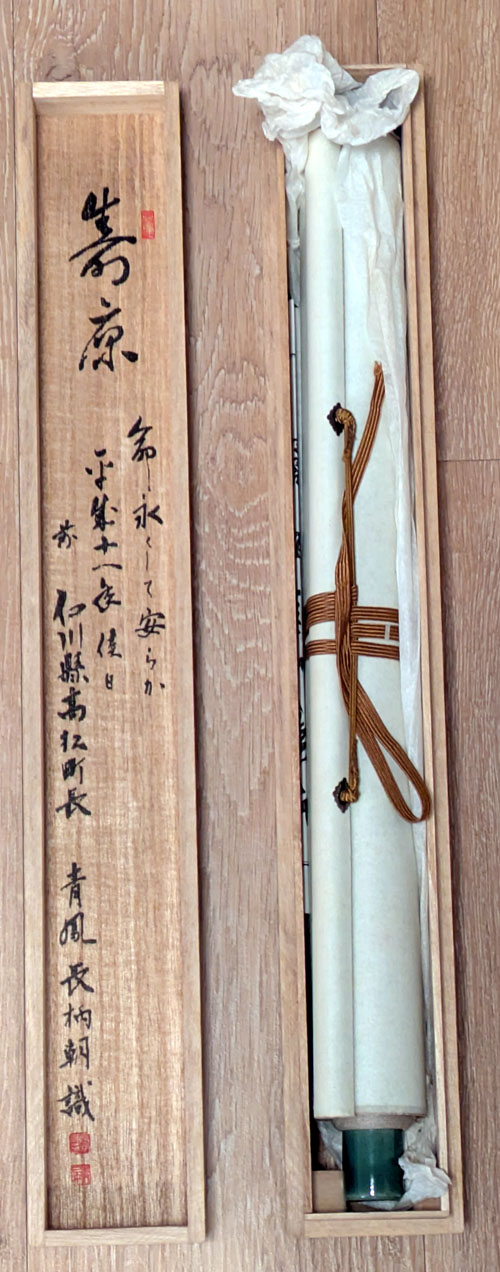 壽康
命永くして安らか
平成十一年佳日
前 石川縣高松町長 青 長柄朝識